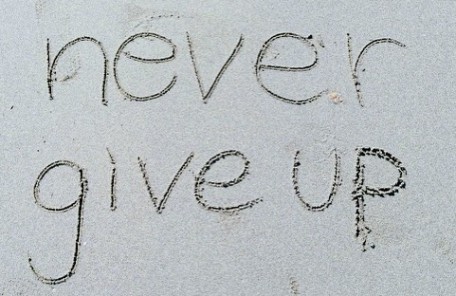 never
give up